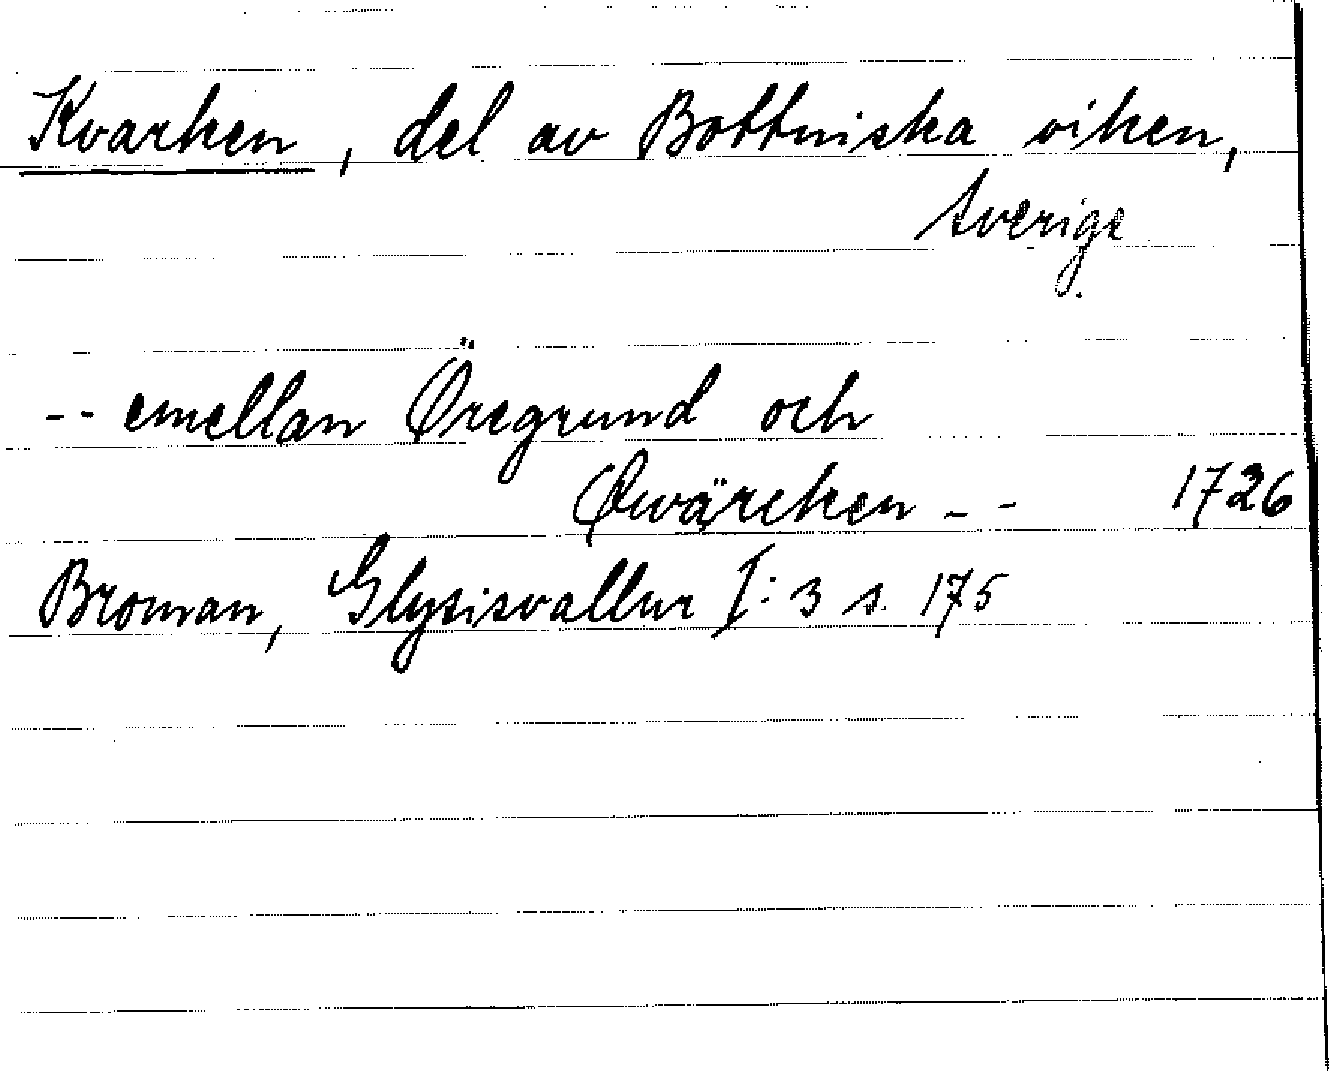 Kvarken, del av Bottniska viken,
Sverige
-- emellan Öregrund och
Qwärcken -- 1726
Broman, Glysisvallur I:3 s. 175